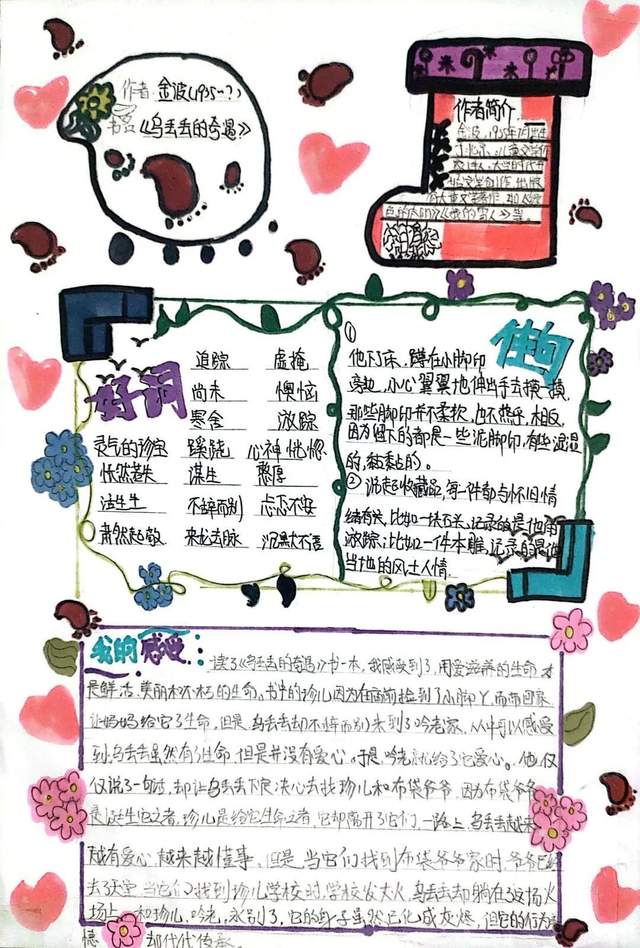 作者:金波(1935—?)
书名:《乌丢丢的奇遇》
作者简介
金波,1935年7月出生
于北京,儿童文学作
学创作,出版
好词
追踪 虚掩
尚未 懊恼
寒舍 游踪
灵气的珍宝 蹊跷 心神恍惚
怅然若失 谋生 憨厚
活生生 不辞而别 忐忑不安
肃然起敬 来龙去脉 沉默不语
佳句
①
他下了床,蹲在小脚印
旁边,小心翼翼地伸出手去摸一摸,
那些脚印并不柔软,也不热乎,相反,
因为留下的都是一些泥脚印,有些湿湿
的,黏黏的。
②说起收藏品,每一件都与怀旧情
结有关,比如一块石头,记录的是他的
游踪;比如一件木雕,记录的是
当地的风土人情.
我的感受:
读了《乌丢丢的奇遇》书一本,我感受到了,用爱滋养的生命才
是鲜活、美丽和不朽的生命。书中的珍儿因为在雨前捡到了小脚丫,而带回家
让妈妈给它了生命,但是,乌丢丢却不辞而别来到了吟老家,从中可以感受
到,乌丢丢虽然有了生命,但是并没有爱心。于是,吟老就给了它爱心。他仅
仅说了一句话,却让乌丢丢下定决心去找珍儿和布袋爷爷,因为布袋爷爷
是诞生它之者,珍儿是给它生命之者,它却离开了它们,一路上,乌丢丢越来
越有爱心,越来越懂事,但是,当它们找到布袋爷爷家时,爷爷已经
去了天堂,当它们找到珍儿学校时,学校发大火,乌丢丢却躺在了这场火
场上,和珍儿、吟老,永别了,它的身子虽然已化成灰烬,但它的行为
却代代传承。